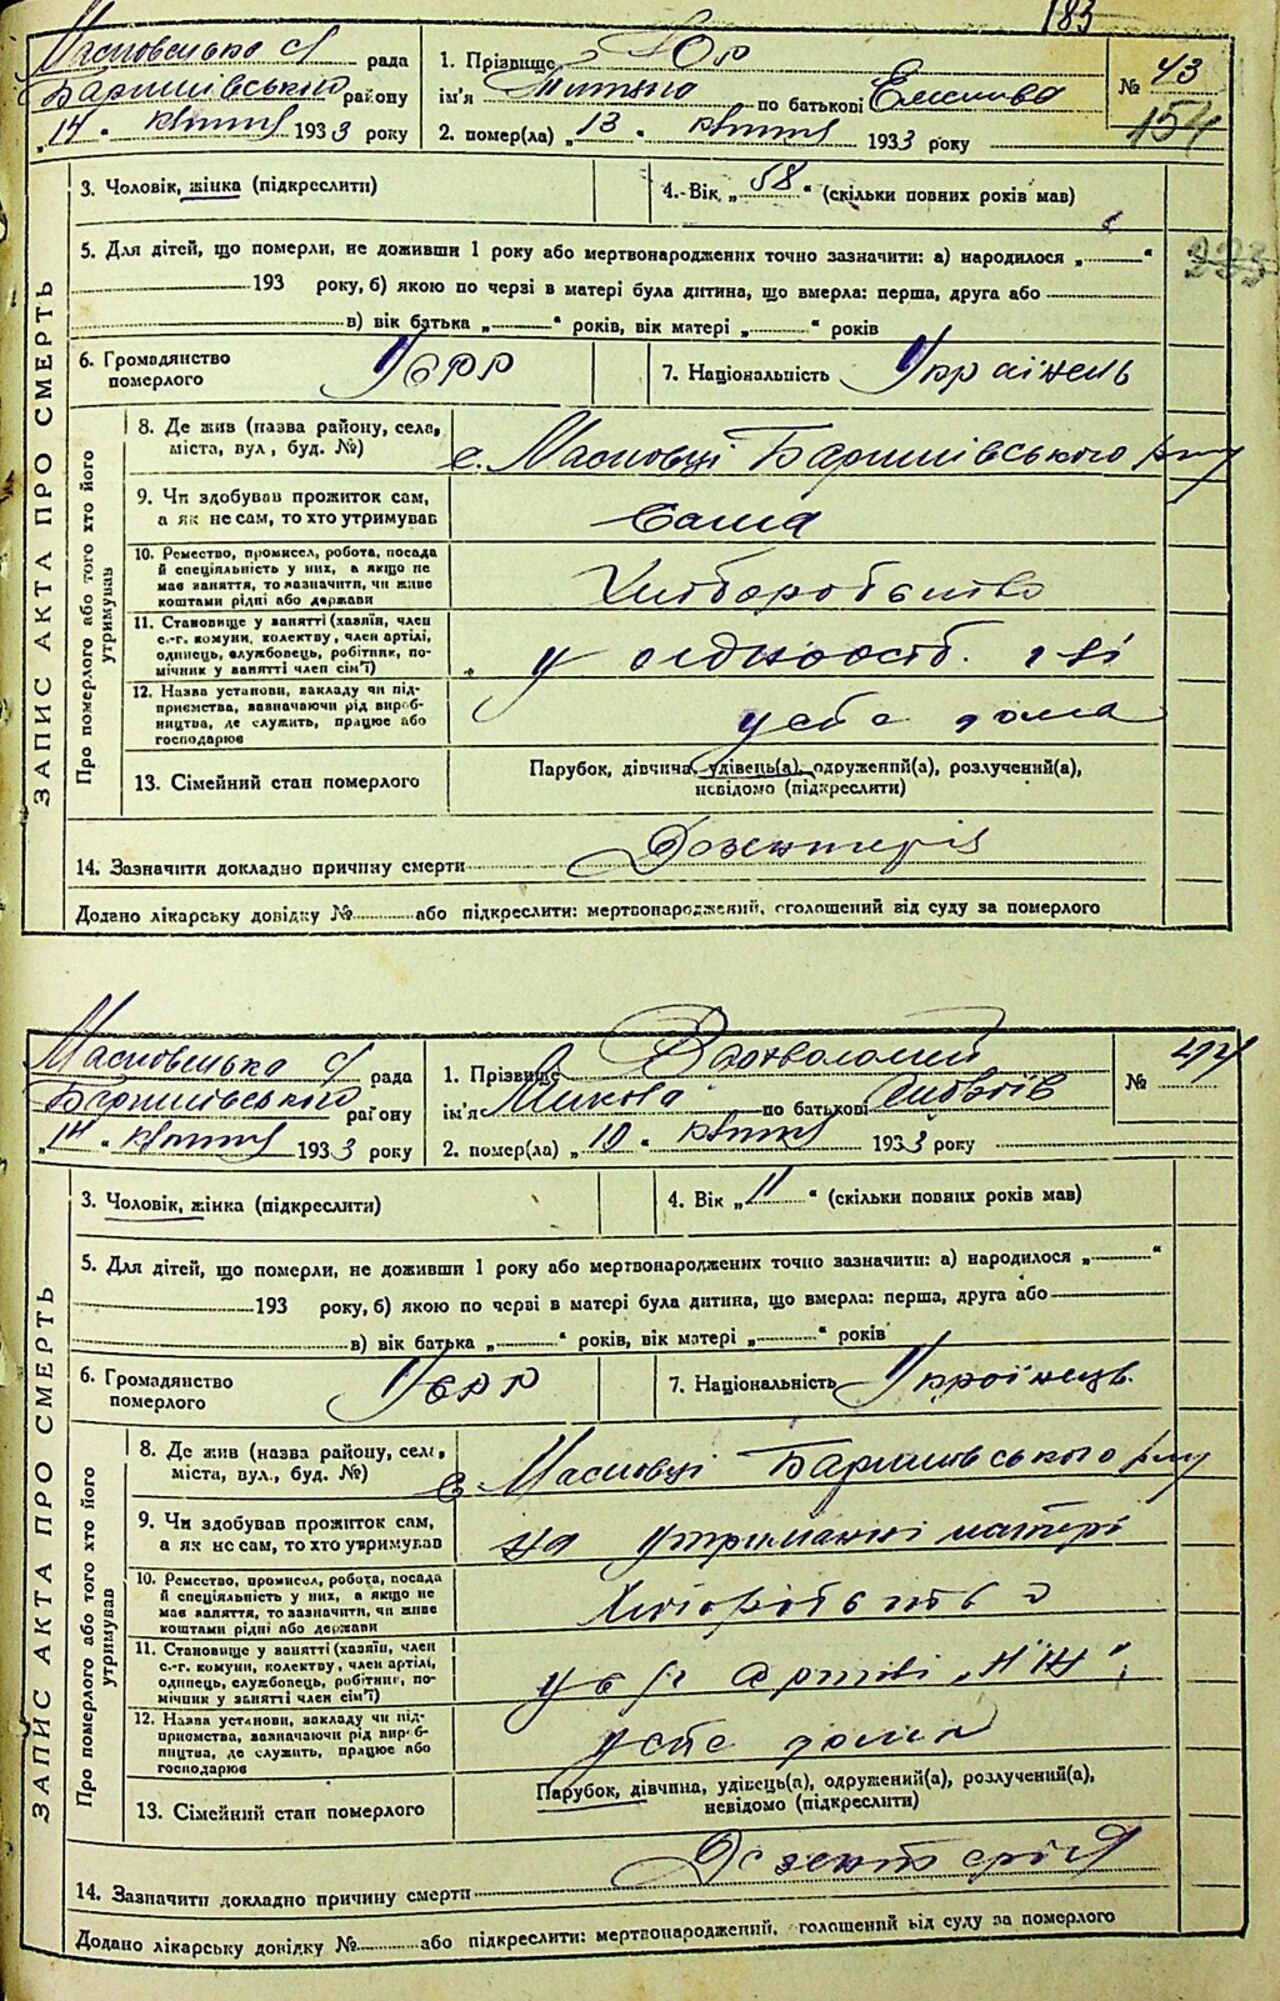 183
Масковецька с/ рада
Баришівського району
„14“ квітня 1933 року
1. Прізвище
ім'я по батькові
2. помер(ла) „13“ квітня 1933 року
№ 43
154
ЗАПИС АКТА ПРО СМЕРТЬ
3. Чоловік, жінка (підкреслити)
4. Вік „58“ (скільки повних років мав)
5. Для дітей, що померли, не доживши 1 року або мертвонароджених точно зазначити: а) народилося „ “
193 року, б) якою по черзі в матері була дитина, що вмерла: перша, друга або
в) вік батька „ “ років, вік матері „ “ років
6. Громадянство померлого УСРР
7. Національність Українець
Про померлого або того хто його утримував
8. Де жив (назва району, села,
міста, вул., буд. №)
с. Масковці Баришівського р-ну
9. Чи здобував прожиток сам,
а як не сам, то хто утримував
Сама
10. Ремество, промисел, робота, посада
й спеціяльність у них, а якщо не
має заняття, то зазначити, чи живе
коштами рідні або держави
Хліборобство
11. Становище у занятті (хазяїн, член
с.-г. комуни, колективу, член артілі,
одинець, службовець, робітник, по-
мічник у занятті член сім'ї)
у одноосіб. г-ві
12. Назва установи, закладу чи під-
приємства, зазначаючи рід вироб-
ництва, де служить, працює або
господарює
у себе дома
13. Сімейний стан померлого
Парубок, дівчина, удівець(а), одружений(а), розлучений(а),
невідомо (підкреслити)
14. Зазначити докладно причину смерти Дезентерія
Додано лікарську довідку № або підкреслити: мертвонароджений, оголошений від суду за померлого
Масковецька с/ рада
Баришівського району
„14“ квітня 1933 року
1. Прізвище
ім'я Микола по батькові
2. помер(ла) „10“ квітня 1933 року
№ 44
ЗАПИС АКТА ПРО СМЕРТЬ
3. Чоловік, жінка (підкреслити)
4. Вік „11“ (скільки повних років мав)
5. Для дітей, що померли, не доживши 1 року або мертвонароджених точно зазначити: а) народилося „ “
193 року, б) якою по черзі в матері була дитина, що вмерла: перша, друга або
в) вік батька „ “ років, вік матері „ “ років
6. Громадянство померлого УСРР
7. Національність Українець.
Про померлого або того хто його утримував
8. Де жив (назва району, села,
міста, вул., буд. №)
с. Масковці Баришівського р-ну
9. Чи здобував прожиток сам,
а як не сам, то хто утримував
на утриманні матері
10. Ремество, промисел, робота, посада
й спеціяльність у них, а якщо не
має заняття, то зазначити, чи живе
коштами рідні або держави
Хліборобство
11. Становище у занятті (хазяїн, член
с.-г. комуни, колективу, член артілі,
одинець, службовець, робітник, по-
мічник у занятті член сім'ї)
у с/г артілі
12. Назва установи, закладу чи під-
приємства, зазначаючи рід вироб-
ництва, де служить, працює або
господарює
у себе дома
13. Сімейний стан померлого
Парубок, дівчина, удівець(а), одружений(а), розлучений(а),
невідомо (підкреслити)
14. Зазначити докладно причину смерти Дезентерія
Додано лікарську довідку № або підкреслити: мертвонароджений, оголошений від суду за померлого